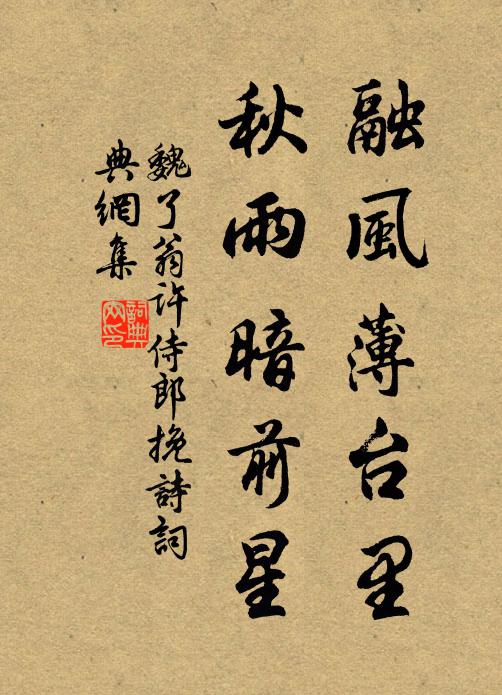 融風薄台里
秋雨暗前星
魏了翁許侍郎挽詩詞
典網集
詞典
网印